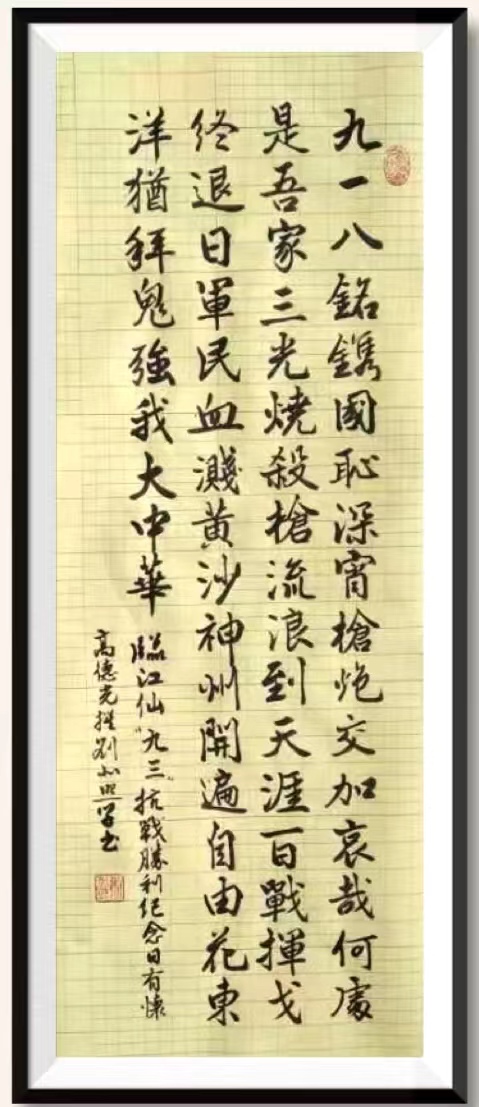 九一八銘鐫國恥深宵槍炮交加哀哉何處
是吾家三光燒殺槍流浪到天涯百戰揮戈
終退日軍民血濺黃沙神州開遍自由花東
洋猶拜鬼強我大中華
臨江仙"九三"抗戰勝利纪念日有懷
高德光撰劉學书